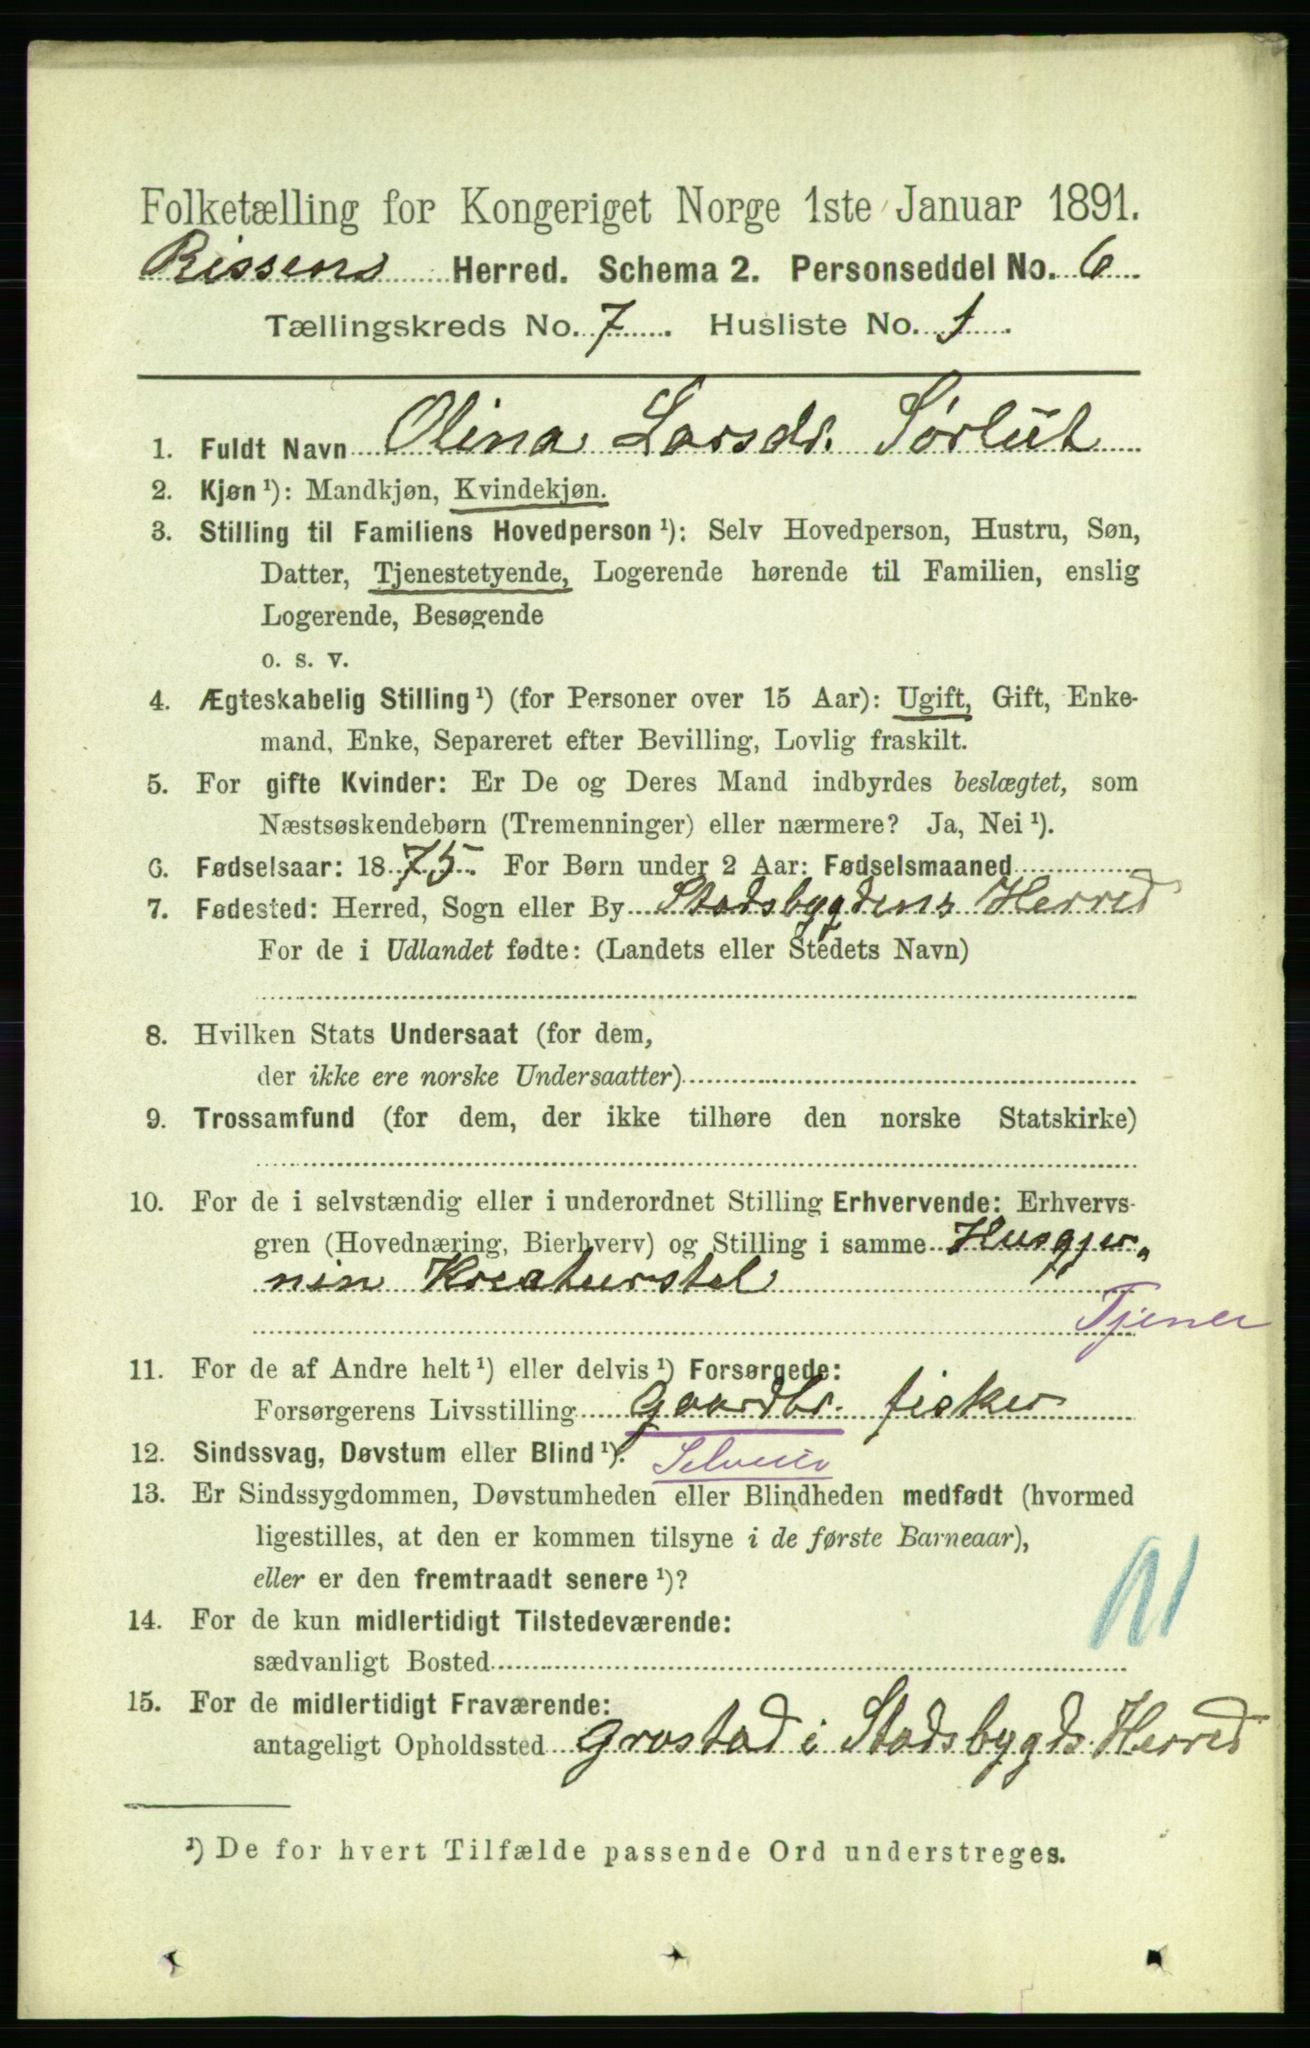 Folketælling for Kongeriget Norge 1ste Januar 1891.
Rissens Herred. Schema 2. Personseddel No. 6
Tællingskreds No. 7. Husliste No. 1.
1. Fuldt Navn Olina Larsdr. Sørlüt
2. Kjøn ¹): Mandkjøn, Kvindekjøn.
3. Stilling til Familiens Hovedperson ¹): Selv Hovedperson, Hustru, Søn,
Datter, Tjenestetyende, Logerende hørende til Familien, enslig
Logerende, Besøgende
o. s. v.
4. Ægteskabelig Stilling ¹) (for Personer over 15 Aar): Ugift, Gift, Enke-
mand, Enke, Separeret efter Bevilling, Lovlig fraskilt.
5. For gifte Kvinder: Er De og Deres Mand indbyrdes beslægtet, som
Næstsøskendebørn (Tremenninger) eller nærmere? Ja, Nei ¹).
6. Fødselsaar: 1875. For Børn under 2 Aar: Fødselsmaaned
7. Fødested: Herred, Sogn eller By Stadsbygdens Herred
For de i Udlandet fødte: (Landets eller Stedets Navn)
8. Hvilken Stats Undersaat (for dem,
der ikke ere norske Undersaatter)
9. Trossamfund (for dem, der ikke tilhøre den norske Statskirke)
10. For de i selvstændig eller i underordnet Stilling Erhvervende: Erhvervs-
gren (Hovednæring, Bierhverv) og Stilling i samme Husgjer„
nin Kreaturstel
Tjener
11. For de af Andre helt ¹) eller delvis ¹) Forsørgede:
Forsørgerens Livsstilling Gaardbr. fisker
12. Sindssvag, Døvstum eller Blind ¹). Selveier
13. Er Sindssygdommen, Døvstumheden eller Blindheden medfødt (hvormed
ligestilles, at den er kommen tilsyne i de første Barneaar),
eller er den fremtraadt senere ¹)?
14. For de kun midlertidigt Tilstedeværende:
sædvanligt Bosted
15. For de midlertidigt Fraværende:
antageligt Opholdssted Grøstad i Stadsbygds Herred
¹) De for hvert Tilfælde passende Ord understreges.